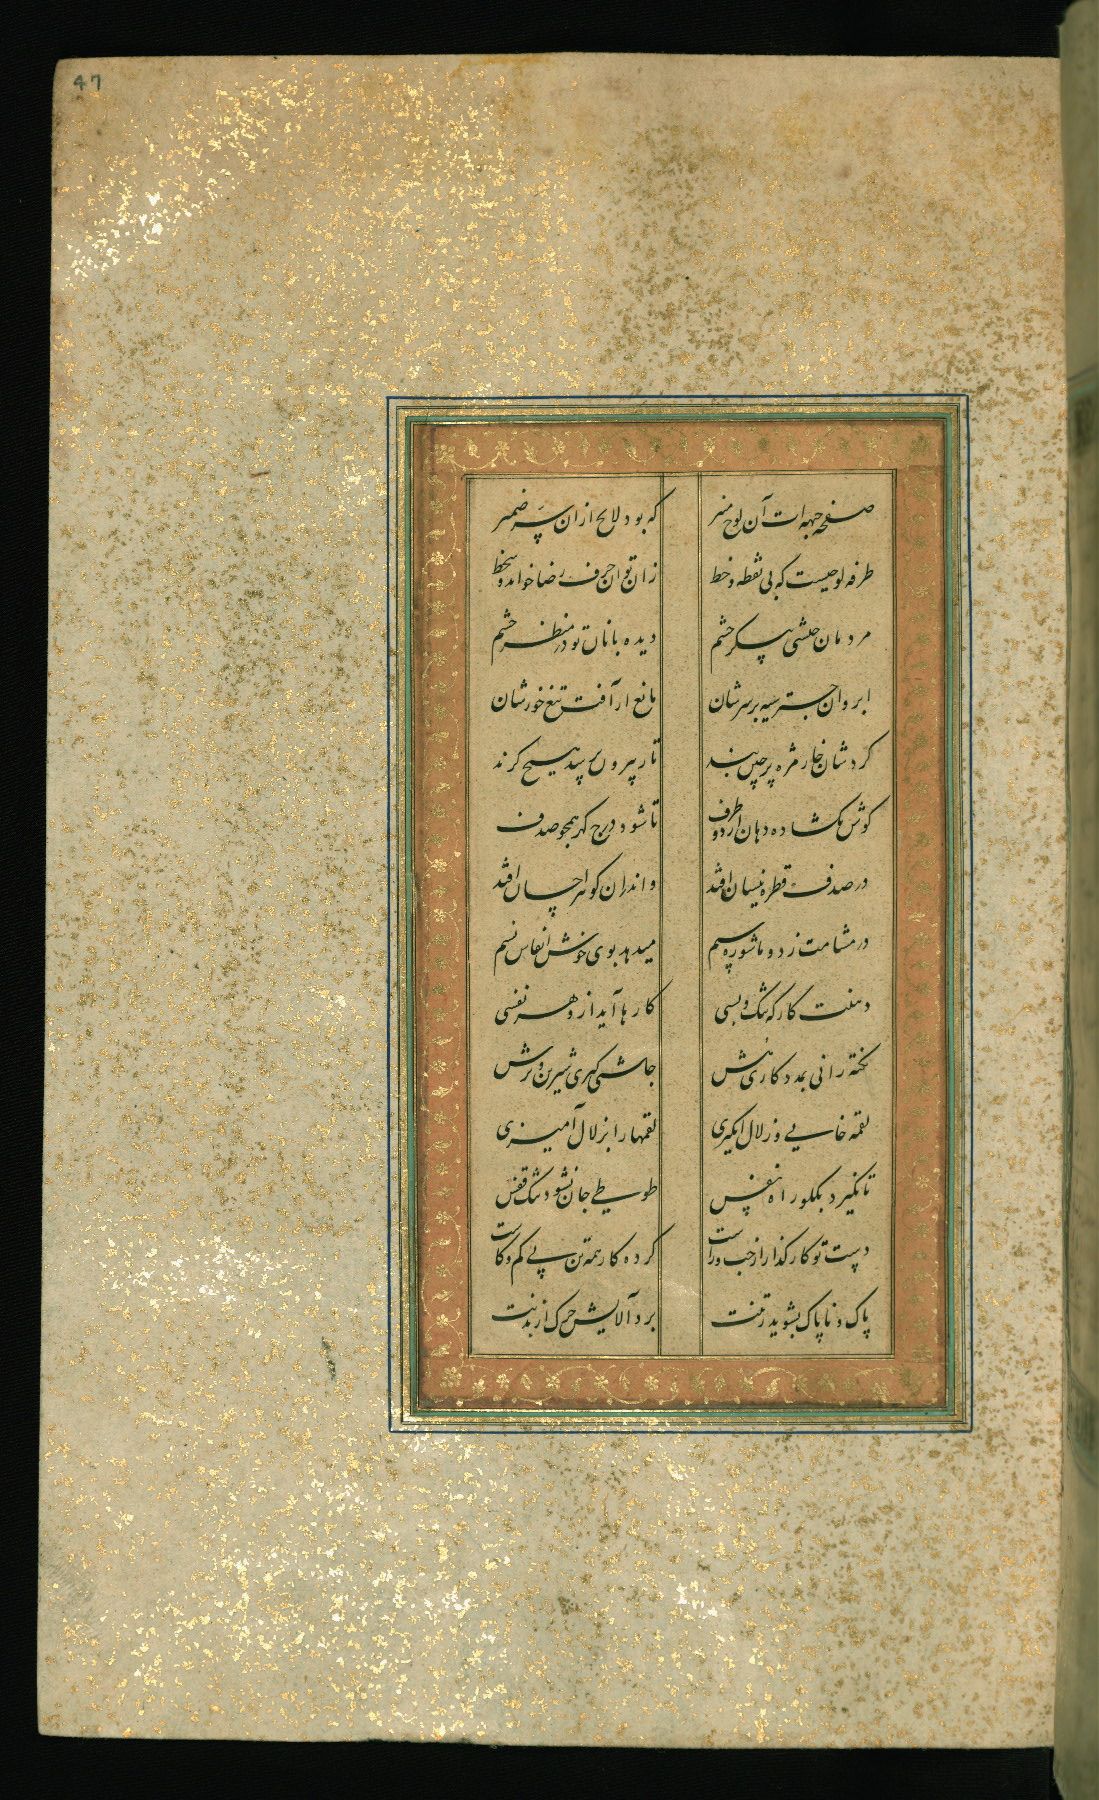 47
صفحه جبهه ات آن لوح منیر که بود لایح ازان سر ضمیر
طرفه لوحیست که بی نقطه و خط زان توان حرف رضا خواند و سخط
مردمان حبشی پیکر چشم دیده بانان تو در منظر چشم
ابروان چتر سیه بر سرشان مانع از آفت تیغ خورشان
کردشان خار مژه پرچین بند تا ز بیرون سپه هیچ گزند
گوش بگشاده دهان از دو طرف تا شود درج گهر همچو صدف
در صدف قطره نیسان افتد واندران گوهر احسان افتد
در مشامت ز دو ماشوره سیم میدهد بوی خوش انفاس نسیم
دهنت کارگه تنگ و بسی کارها آید ازو هر نفسی
نکته رانی بمددکاری هش چاشنی گیری شیرین و ترش
لقمه خایی و زلال انگیزی لقمها را بزلال آمیزی
تا نگیرد بگلو راه نفس طوطی جان نشود تنگ قفس
دست تو کارگذار از چپ و راست کرده کار همه تن بی کم و کاست
پاک و ناپاک بشوید ز تنت برد آلایش چرک از بدنت